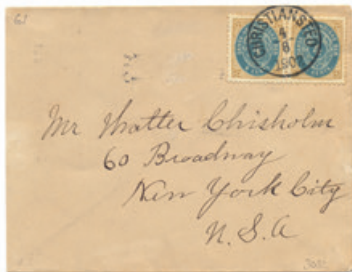 61
CHRISTIANSTED
4
8
190
Mr Walter Chisholm
60 Broadway
New York City
U.S.A